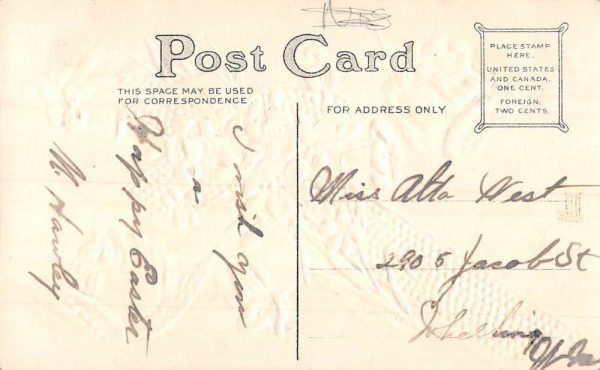 Post Card
THIS SPACE MAY BE USED
FOR CORRESPONDENCE.
FOR ADDRESS ONLY
PLACE STAMP
HERE.
UNITED STATES
AND CANADA,
ONE CENT.
FOREIGN,
TWO CENTS.
I wish you
a
Happy Easter
N. Hawley
Miss Alta West
2905 Jacob St
Wheeling
W Va